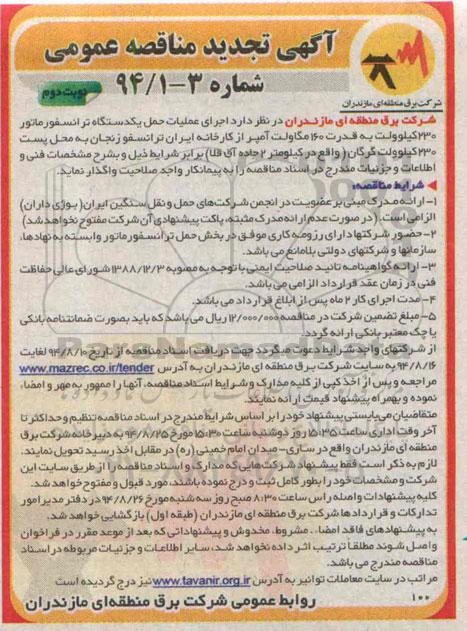 آگهی تجدید مناقصه عمومی
شماره ۳-۹۴/۱
نوبت دوم
شرکت برق منطقه‌ای مازندران
شرکت برق منطقه ای مازندران در نظر دارد اجرای عملیات حمل یکدستگاه ترانسفورماتور
۲۳۰کیلوولت به قدرت ۱۶۰ مگاولت آمپر از کارخانه ایران ترانسفو زنجان به محل پست
۲۳۰ کیلوولت گرگان (واقع در کیلومتر ۲ جاده آق قلا) برابر شرایط ذیل و بشرح مشخصات فنی و
اطلاعات و جزئیات مندرج در اسناد مناقصه را به پیمانکار واجد صلاحیت واگذار نماید.
شرایط مناقصه:
۱- ارائه مدرک مبنی بر عضویت در انجمن شرکت‌های حمل و نقل سنگین ایران( بوژی داران)
الزامی است. (در صورت عدم ارائه مدرک مثبته، پاکت پیشنهادی آن شرکت مفتوح نخواهد شد)
۲-حضور شرکتها دارای رزومه کاری موفق در بخش حمل ترانسفورماتور وابسته به نهادها،
سازمانها و شرکتهای دولتی بلامانع می باشد.
۳- ارائه گواهینامه تائید صلاحیت ایمنی با توجه به مصوبه ۱۳۸۸/۱۲/۳ شورای عالی حفاظت
فنی در زمان عقد قرارداد الزامی می باشد.
۴-مدت اجرای کار ۲ ماه پس از ابلاغ قرارداد می باشد.
۵-مبلغ تضمین شرکت در مناقصه ۱۲/۰۰۰/۰۰۰ ریال می باشد که باید بصورت ضمانتنامه بانکی
یا چک معتبر بانکی ارائه گردد.
از شرکتهای واجد شرایط دعوت میگردد جهت دریافت اسناد مناقصه از تاریخ ۹۴/۸/۱۰ لغایت
۹۴/۸/۱۶ به سایت شرکت برق منطقه ای مازندران به آدرس www.mazrec.co.ir/tender
مراجعه و پس از اخذ کپی از کلیه مدارک و شرایط اسناد مناقصه، آنها را ممهور به مهر و امضاء
نموده و بهمراه پیشنهاد قیمت ارائه نمایند.
متقاضیان می‌بایستی پیشنهاد خود را بر اساس شرایط مندرج در اسناد مناقصه تنظیم و حداکثر تا
آخر وقت اداری ساعت ۱۵:۳۵ روز دوشنبه ساعت ۱۵:۳۰ مورخ ۹۴/۸/۲۵ به دبیرخانه شرکت برق
منطقه ای مازندران واقع در ساری- میدان امام خمینی (ره) در مقابل اخذ رسید تحویل نمایند.
لازم به ذکر است فقط پیشنهاد شرکت‌هایی که مدارک و اسناد مناقصه را از طریق سایت این
شرکت و مشخصات خود را بطور کامل ثبت و درج نموده باشند، مورد قبول و مفتوح خواهد شد.
کلیه پیشنهادات واصله راس ساعت ۸:۳۰ صبح روز سه شنبه مورخ ۹۴/۸/۲۶ در دفتر مدیر امور
تدارکات و قراردادها شرکت برق منطقه‌ای مازندران (طبقه اول) بازگشایی خواهد شد.
به پیشنهادهای فاقد امضاء، مشروط، مخدوش و پیشنهاداتی که بعد از موعد مقرر در فراخوان
واصل شوند مطلقاً ترتیب اثر داده نخواهد شد، سایر اطلاعات و جزئیات مربوطه در اسناد
مناقصه مندرج می باشد.
مراتب در سایت معاملات توانیر به آدرس www.tavanir.org.ir نیز درج گردیده است
۱۰۰
روابط عمومی شرکت برق منطقه‌ای مازندران